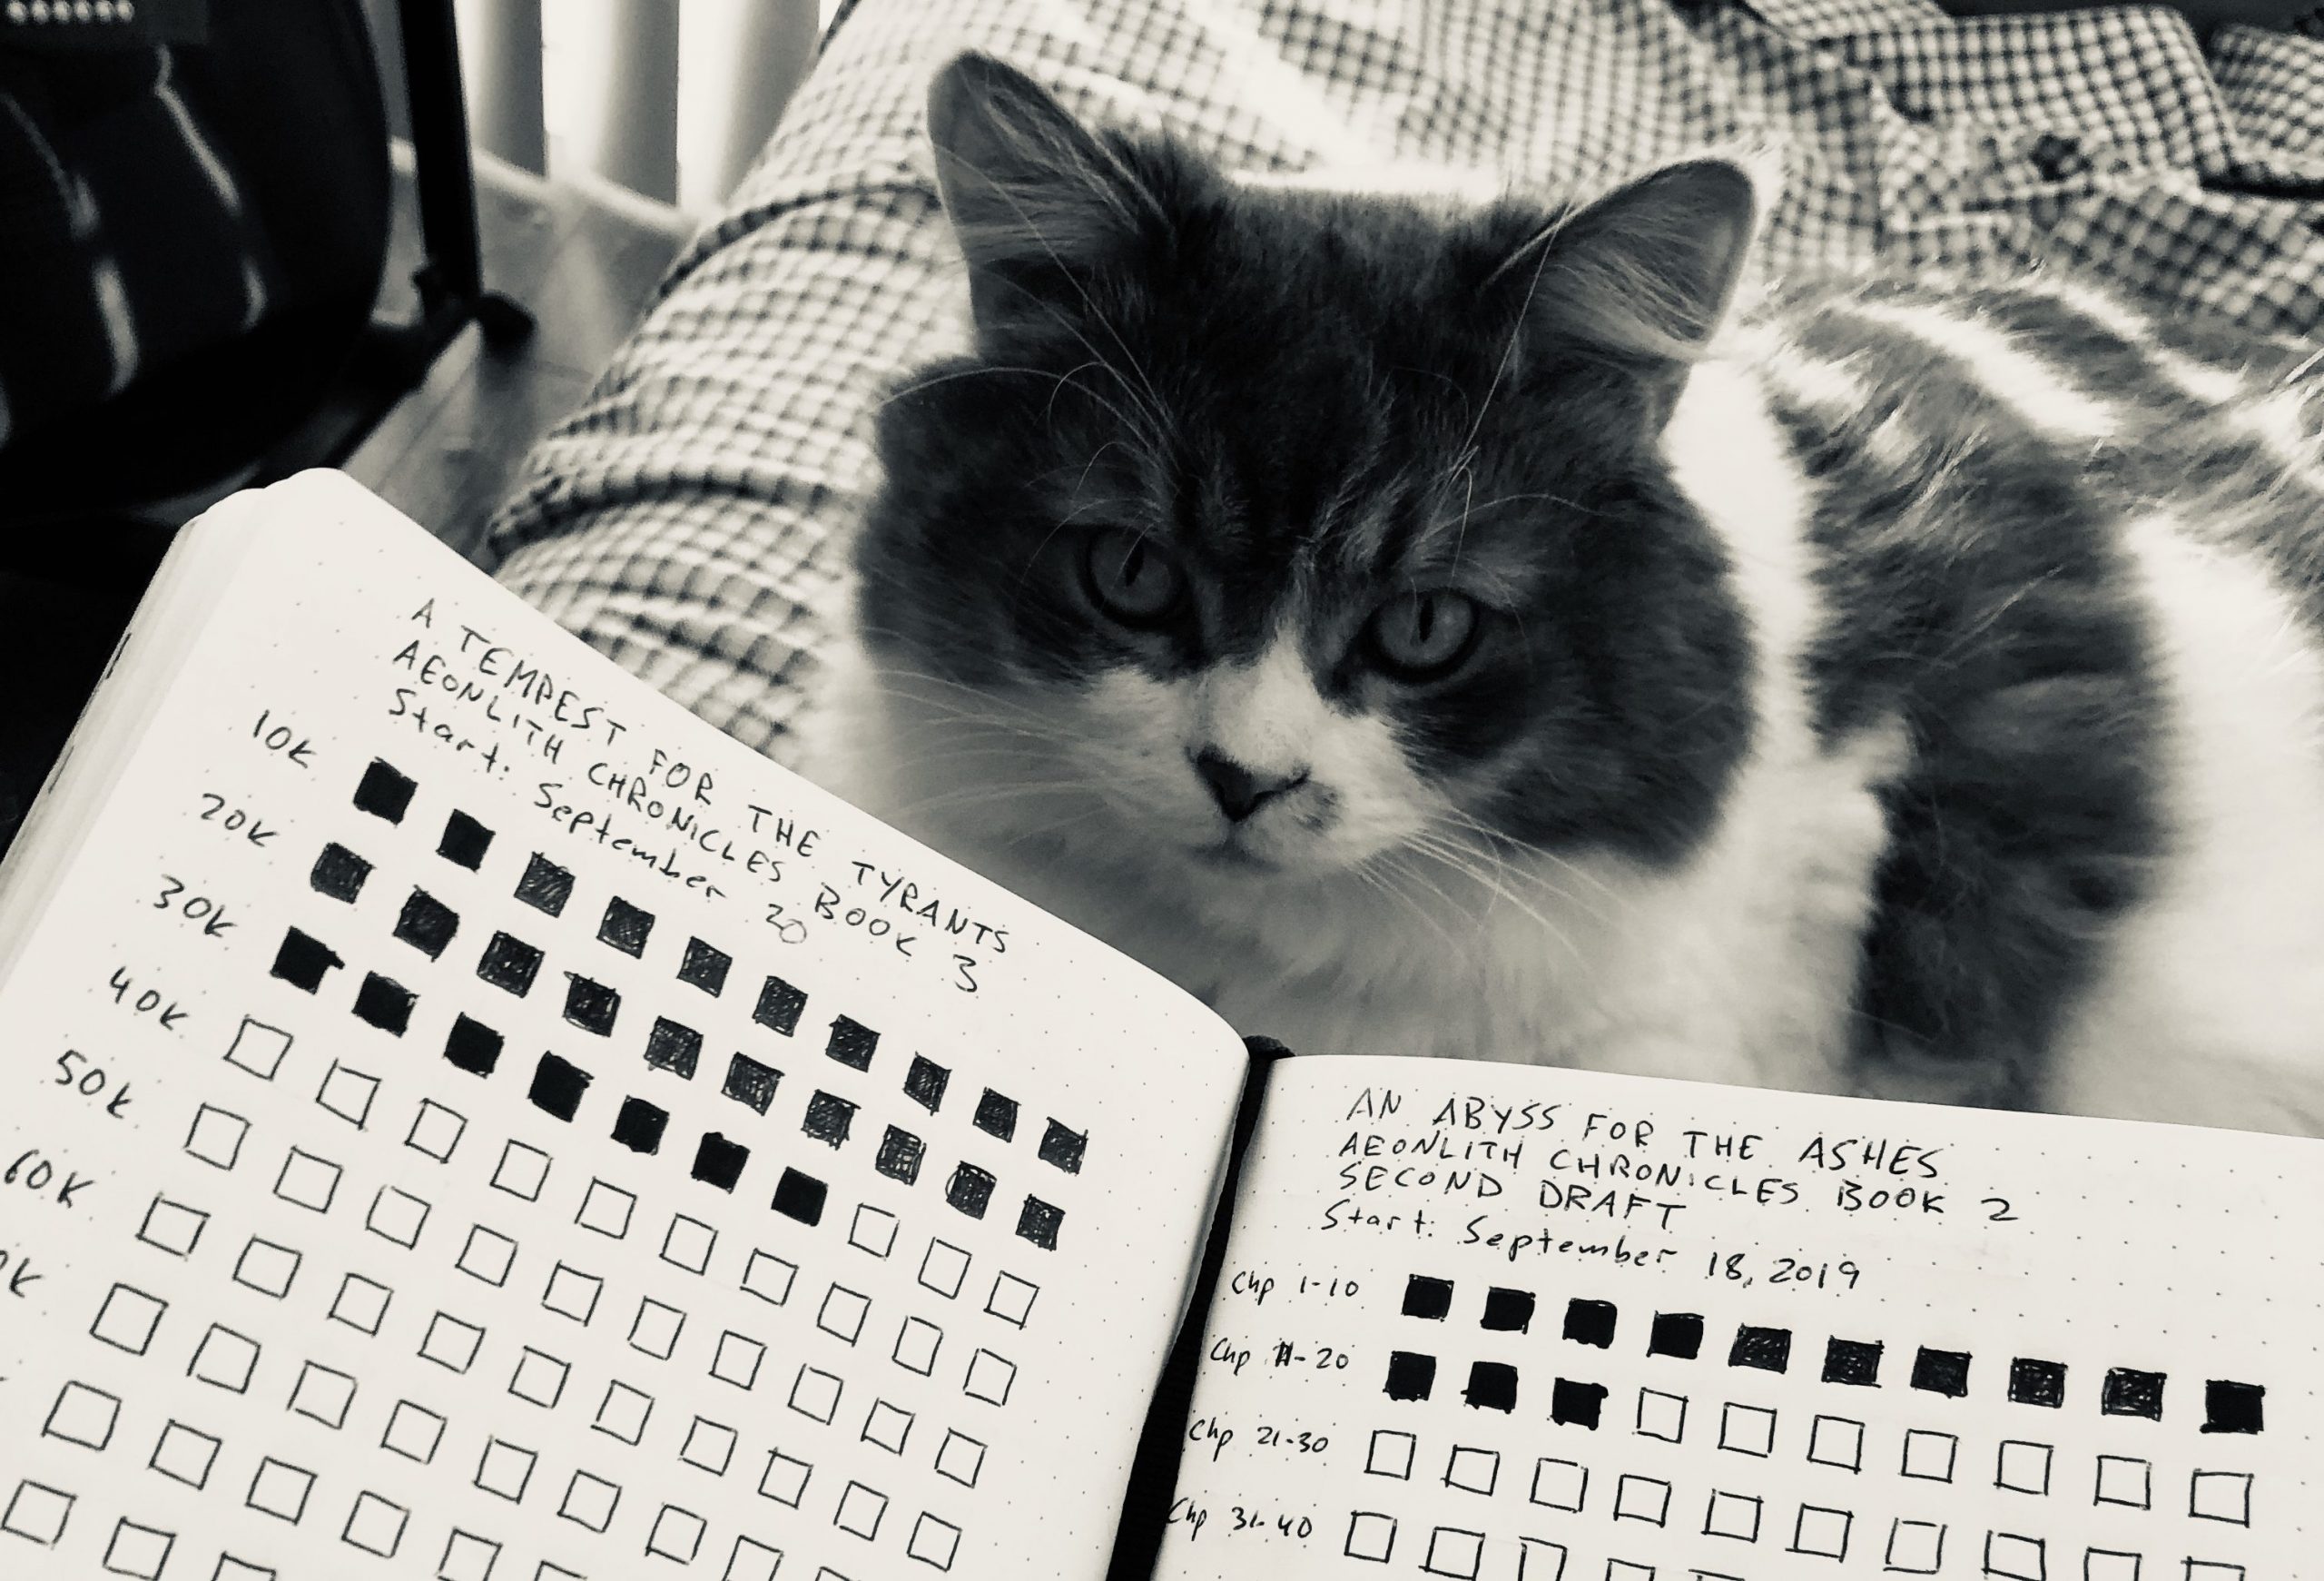 A TEMPEST FOR THE TYRANTS
AEONLITH CHRONICLES BOOK 3
Start: September 20
10K
20K
30K
40K
50K
60K
AN ABYSS FOR THE ASHES
AEONLITH CHRONICLES BOOK 2
SECOND DRAFT
Start: September 18, 2019
Chp 1-10
Chp 11-20
Chp 21-30
Chp 31-40